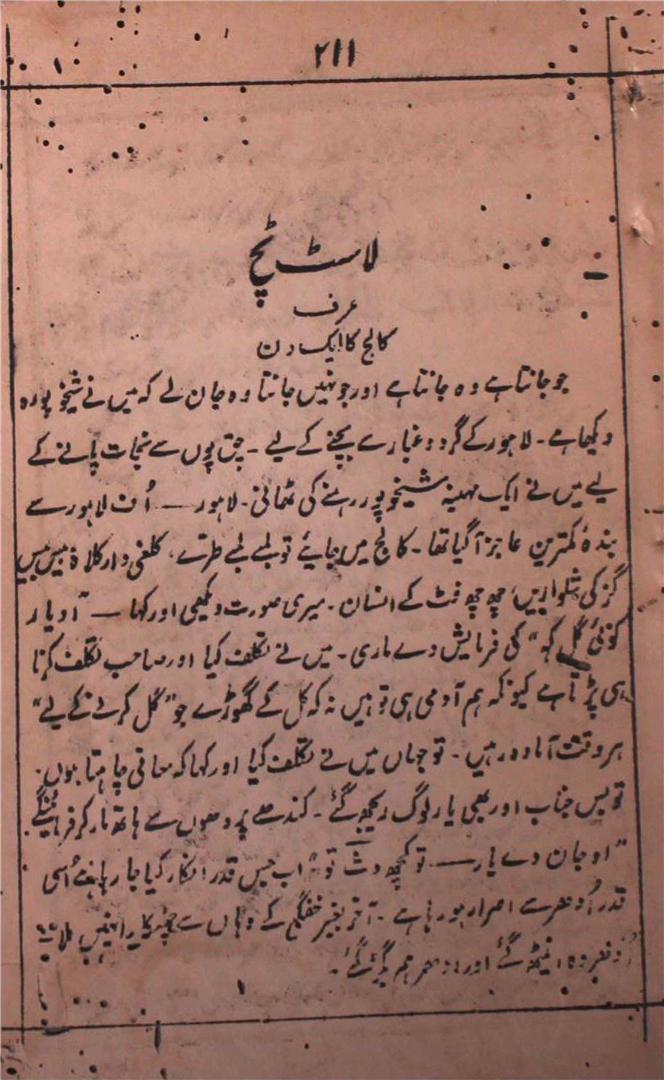 ۲۱۱
لاسٹ ٹچ
عرف
کالج کا ایک دن
جو جانتا ہے وہ جانتا ہے اور جو نہیں جانتا وہ جان لے کہ میں نے شیخوپورہ
دیکھا ہے۔ لاہور کے گرد و غبار سے بچنے کے لیے۔ چق پوں سے نجات پانے کے
لیے میں نے ایک مہینہ شیخوپور رہنے کی ٹھانی۔ لاہور — اُف لاہور سے
بندۂ کمترین عاجز آ گیا تھا۔ کالج میں جائیے تو لمبے لمبے طرّے، کلغی دار کلاہ بیس بیس
گز کی شلواریں، چھ چھ فٹ کے انسان۔ میری صورت دیکھی اور کہا — "او یار
کوئی گل کہہ" کی فرمایش دے ماری۔ میں نے تکلف کیا اور صاحب تکلف کرنا
ہی پڑتا ہے کیونکہ ہم آدمی ہی تو ہیں نہ کہ کل کے گھوڑے جو "گل کرنے کے لیے"
ہر وقت آمادہ رہیں۔ تو جہاں میں نے تکلف کیا اور کہا کہ معافی چاہتا ہوں۔
تو بس جناب اور بھی یار لوگ ریجھ گئے۔ کندھے پر دھوں سے ہاتھ مار کر فرمائینگے
"او جان دے یار — تو کچھ دث تو" اب جس قدر انکار کیا جا رہا ہے اُسی
قدر اُدھر سے اصرار ہو رہا ہے۔ آخر بغیر خفگی کے وہاں سے چھٹکارا نہیں ملا
اُدھر وہ اینٹھ گئے اور ادھر ہم بگڑ گئے۔